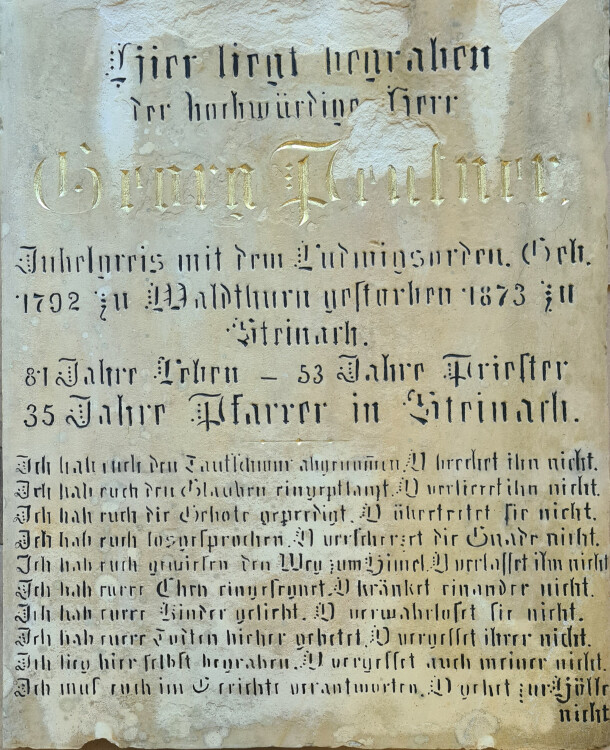 Hier liegt begraben
der hochwürdige Herr
Georg Preusner,
Jubelgreis mit dem Ludwigsorden. Geb.
1792 zu Waldthurn gestorben 1873 zu
Steinach.
81 Jahre Leben – 53 Jahre Priester
35 Jahre Pfarrer in Steinach.
Ich hab euch den Taufschwur abgenom̄en. O brechet ihn nicht.
Ich hab euch den Glauben eingepflanzt. O verlieret ihn nicht.
Ich hab euch die Gebote gepredigt. O übertretet sie nicht.
Ich hab euch losgesprochen. O verscherzet die Gnade nicht.
Ich hab euch gewiesen den Weg zum Him̄el. O verlasset ihn nicht
Ich hab euere Ehen eingesegnet. O kränket einander nicht.
Ich hab euere Kinder geliebt. O verwahrloset sie nicht.
Ich hab euere Todten hieher gebetet. O vergesset ihrer nicht.
Ich lieg hier selbst begraben. O vergesset auch meiner nicht.
Ich mus euch im Gerichte verantworten. O gehet zur Hölle
nicht